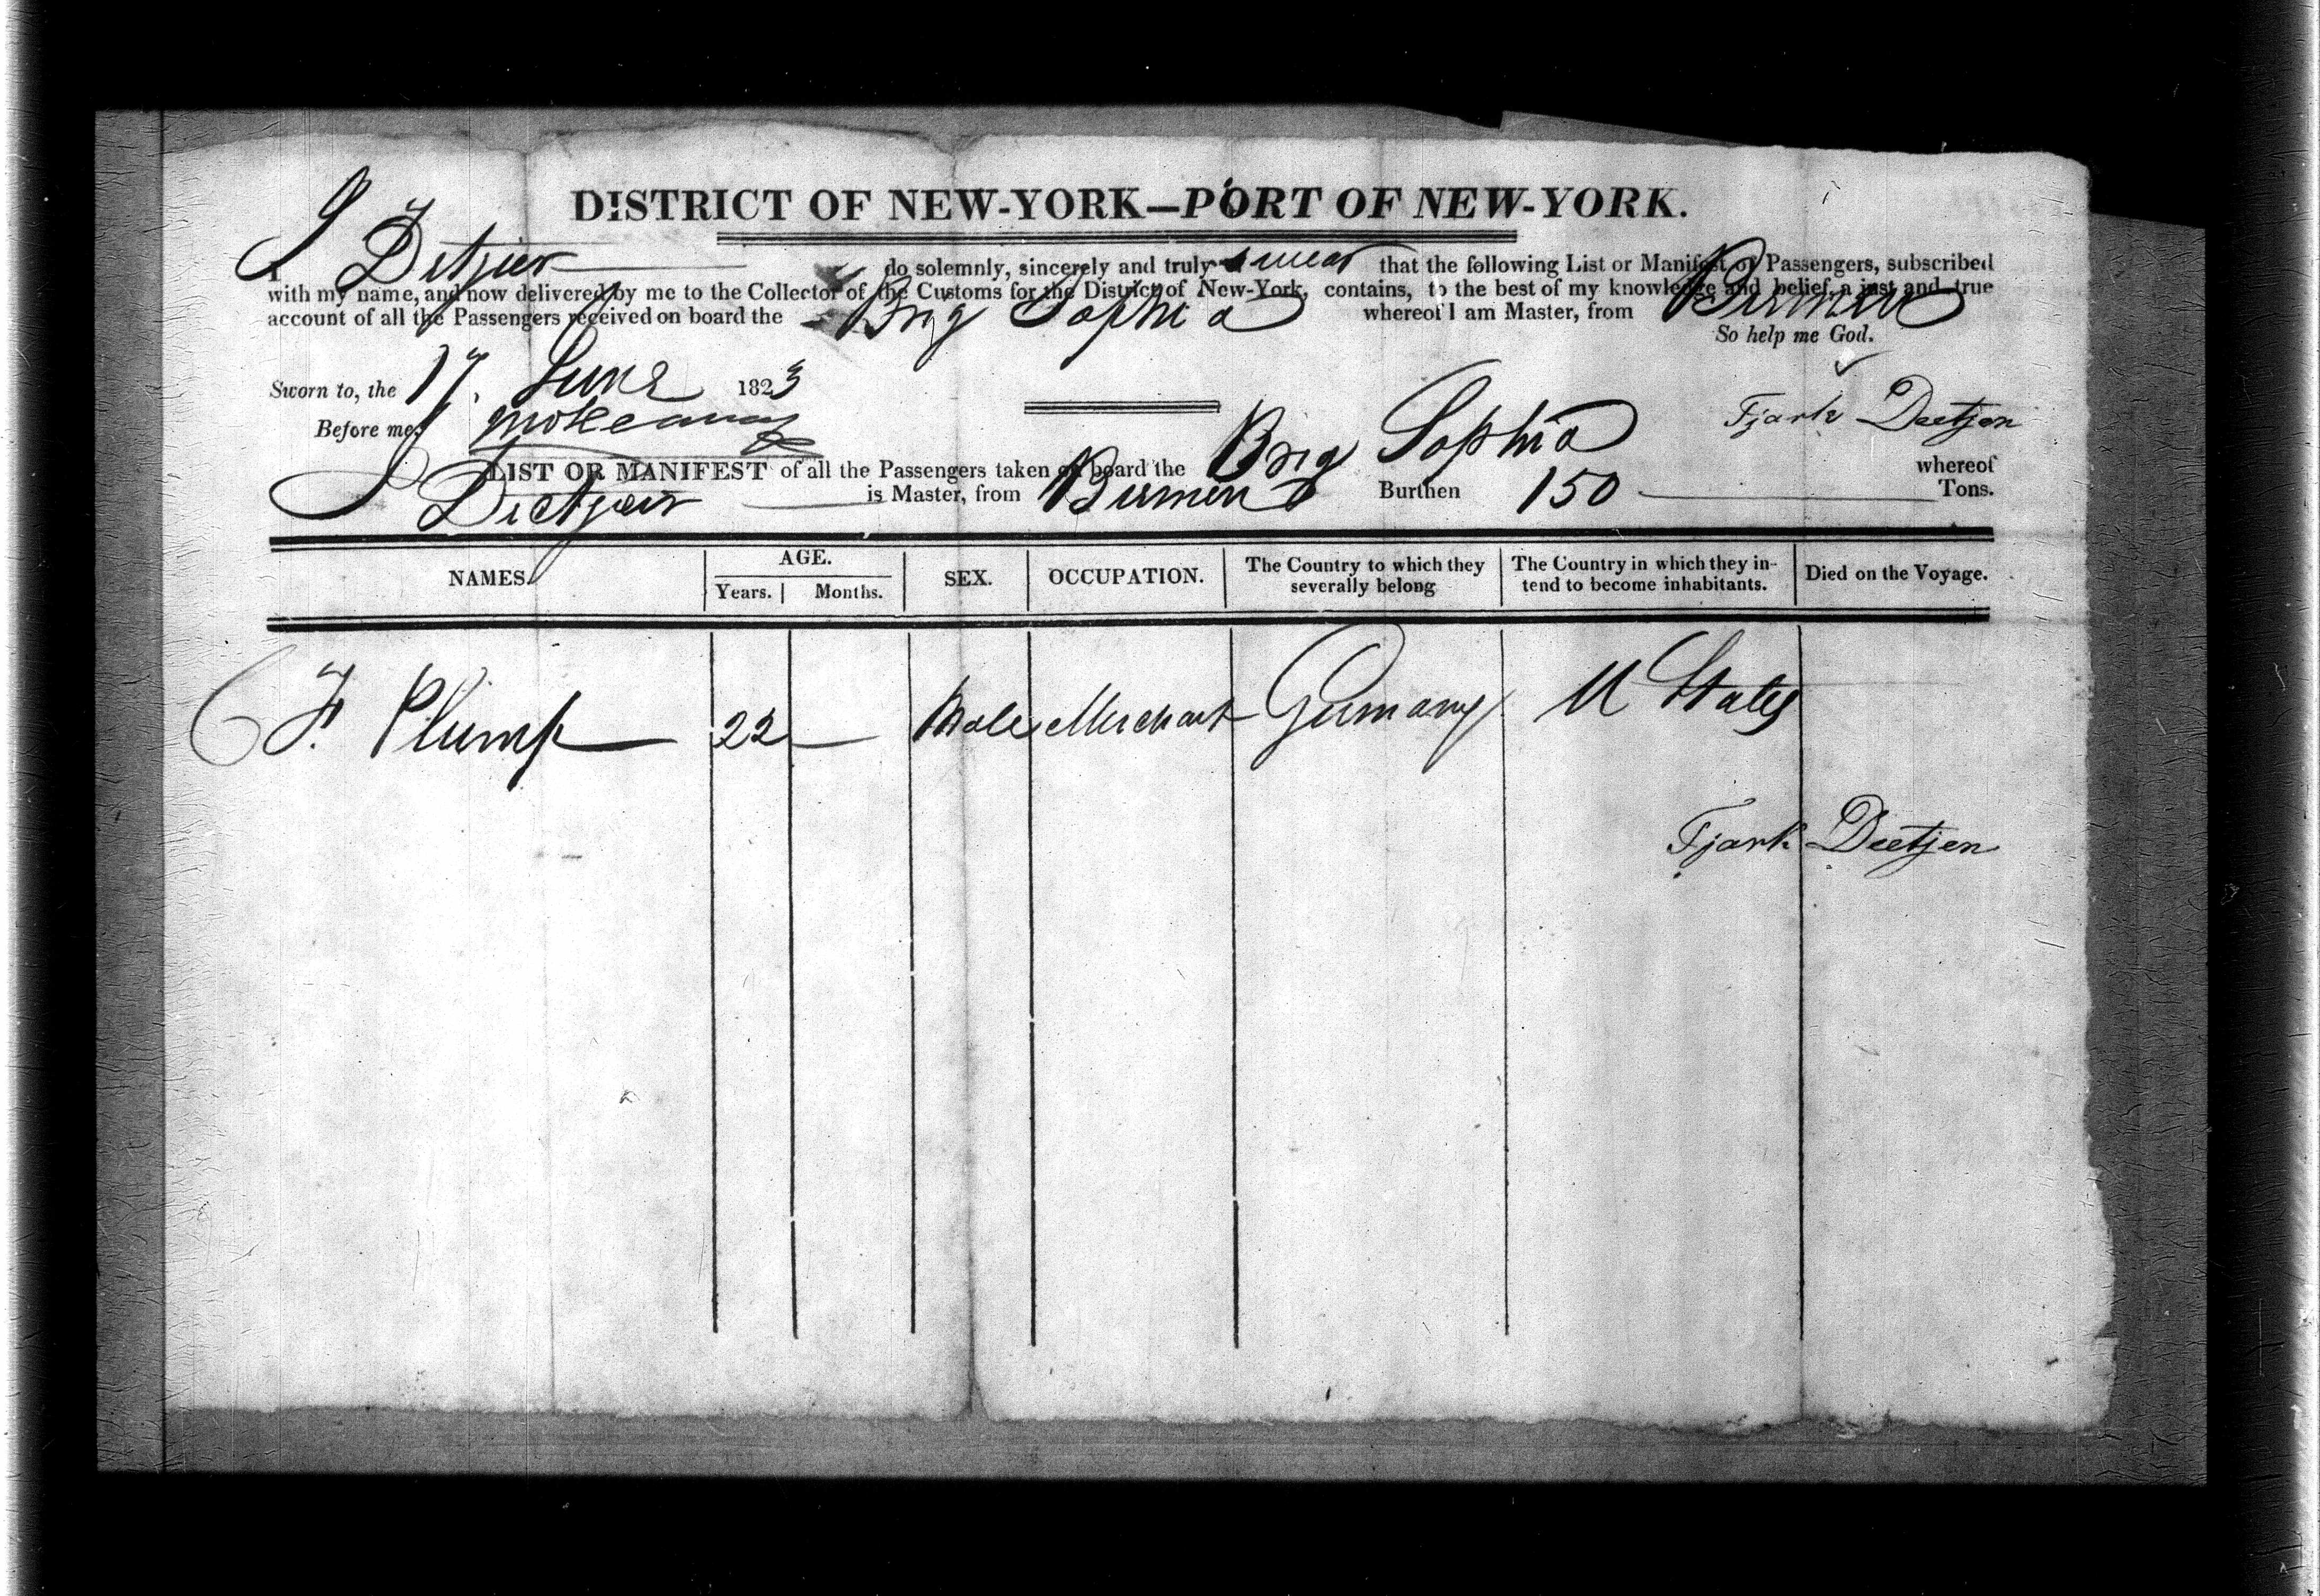 DISTRICT OF NEW-YORK—PORT OF NEW-YORK.
I J Detjier do solemnly, sincerely and truly swear that the following List or Manifest of Passengers, subscribed
with my name, and now delivered by me to the Collector of the Customs for the District of New-York, contains, to the best of my knowledge and belief, a just and true
account of all the Passengers received on board the Brig Sophia whereof I am Master, from Bremen
So help me God.
Sworn to, the 17. June 1823
Before me, Fjark Deetjen
LIST OR MANIFEST of all the Passengers taken on board the Brig Sophia whereof
J Dietjen is Master, from Bremen Burthen 150 Tons.
NAMES. AGE. Years. Months. SEX. OCCUPATION. The Country to which they severally belong The Country in which they intend to become inhabitants. Died on the Voyage.
F. Plump 22 — Male Merchant Germany U States
Fjark Deetjen